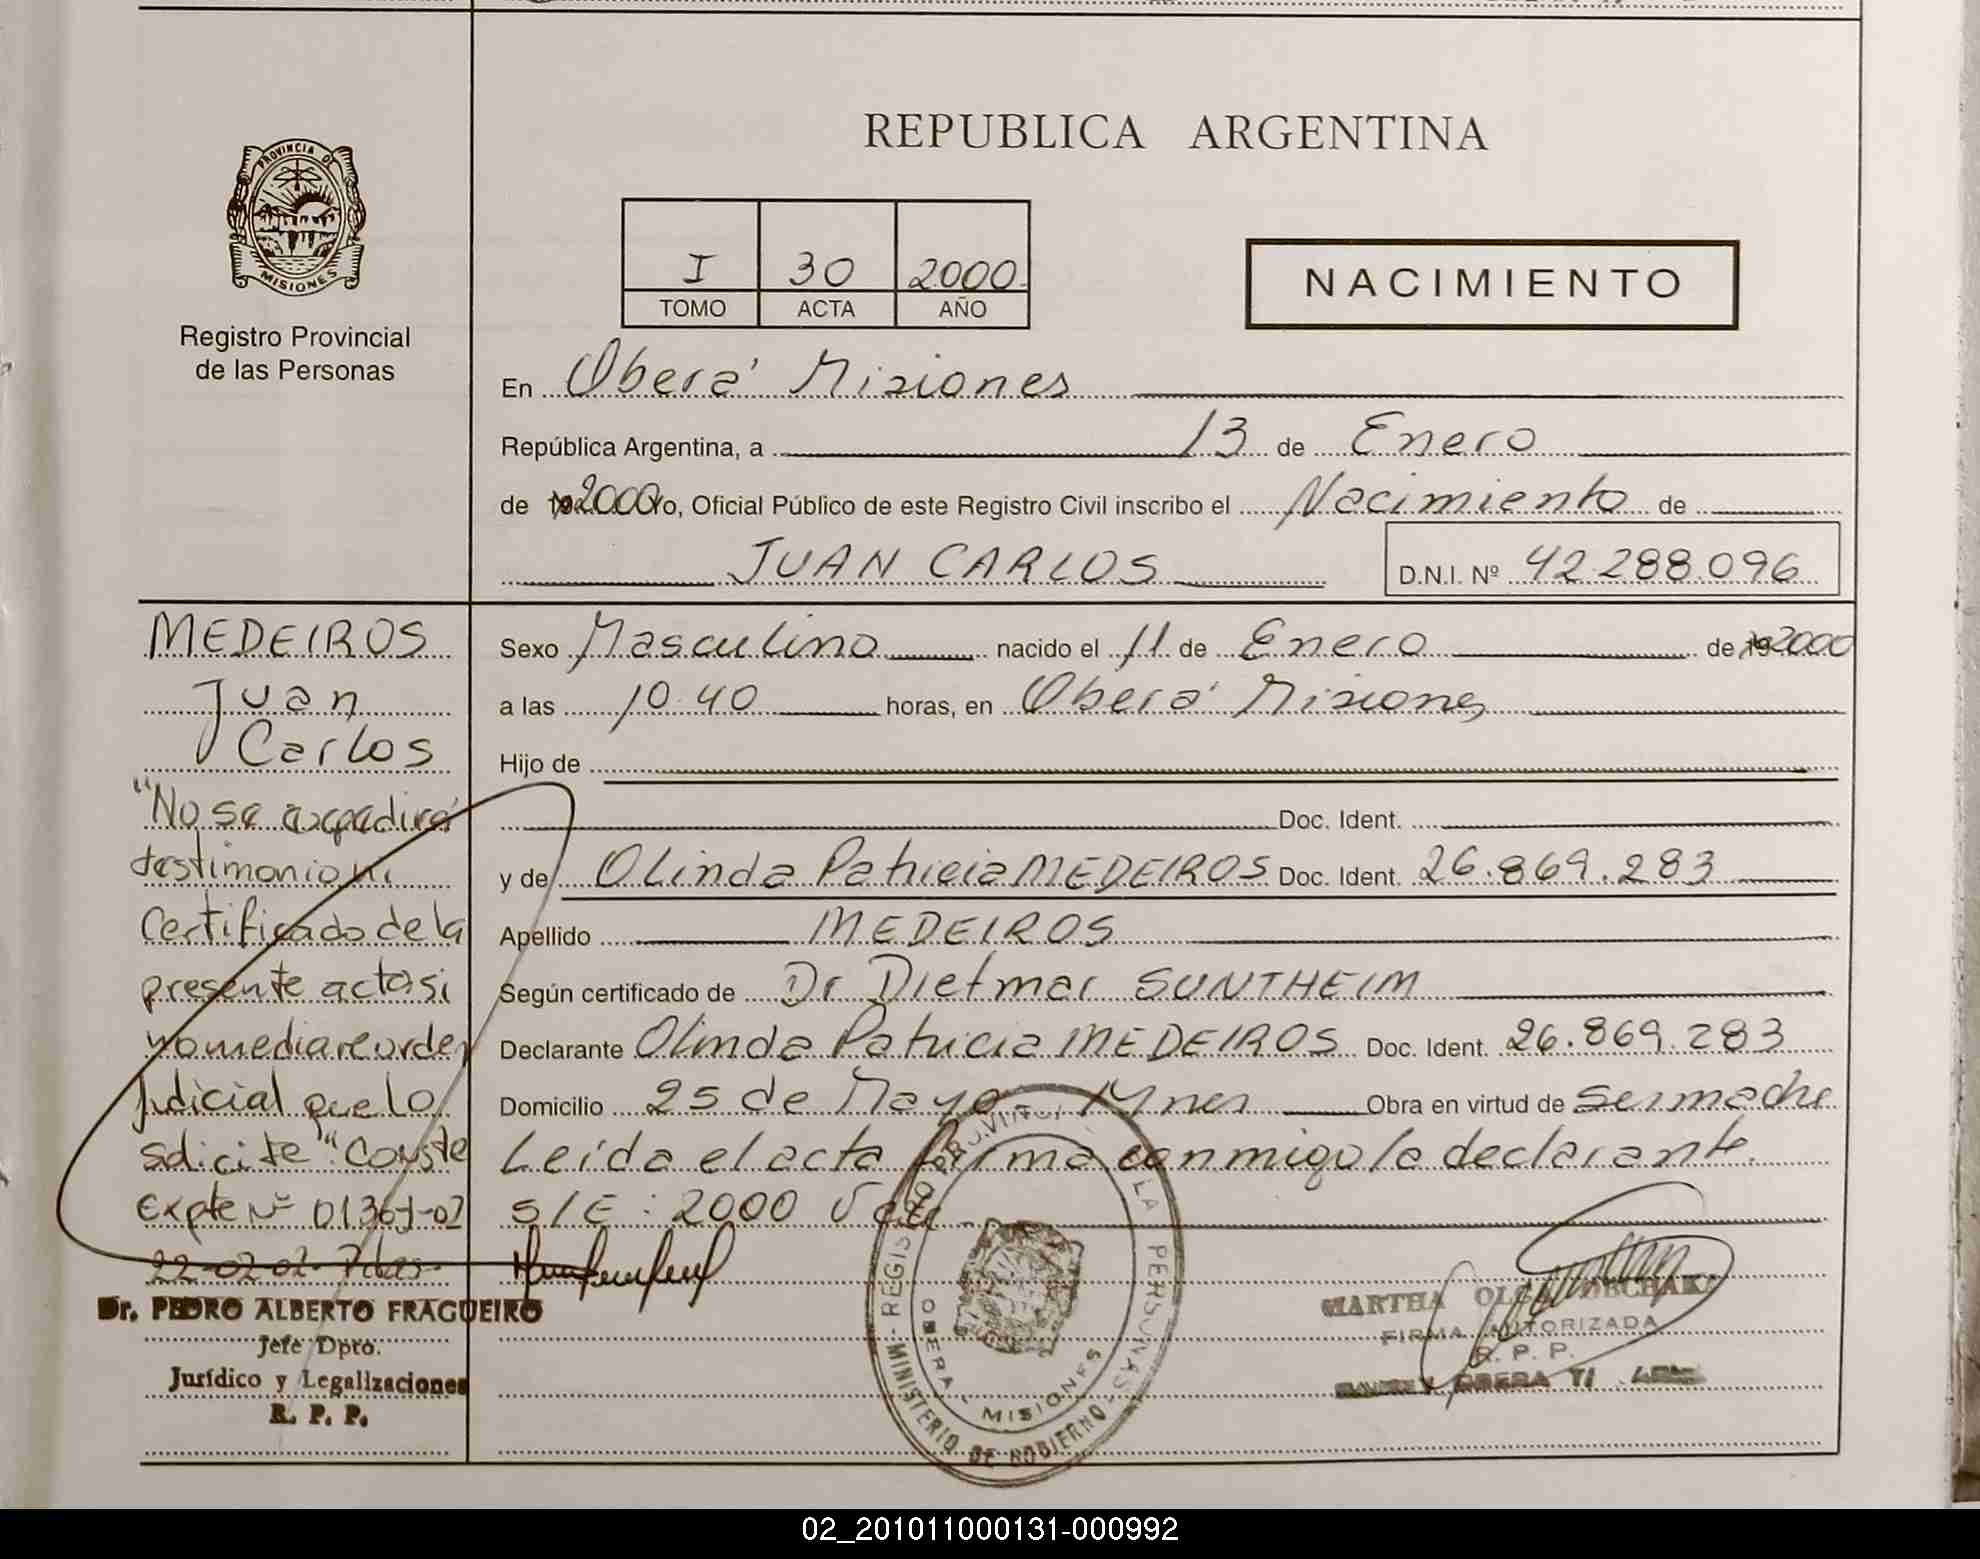 REPUBLICA ARGENTINA
PROVINCIA DE
MISIONES
Registro Provincial
de las Personas
I 30 2000
TOMO ACTA AÑO
NACIMIENTO
En Oberá Misiones
República Argentina, a 13 de Enero
de 19 2000 Yo, Oficial Público de este Registro Civil inscribo el Nacimiento de
JUAN CARLOS D.N.I. Nº 42.288.096
MEDEIROS
Juan
Carlos
"No se expedirá
testimonio ni
Certificado de la
presente acta si
no mediare orden
Judicial que lo
solicite" Conste
Expte Nº 01367-02
22-02-02
Dr. PEDRO ALBERTO FRAGUEIRO
Jefe Dpto.
Jurídico y Legalizaciones
R. P. P.
Sexo Masculino nacido el 11 de Enero de 19 2000
a las 10.40 horas, en Oberá Misiones
Hijo de
Doc. Ident.
y de Olinda Patricia MEDEIROS Doc. Ident. 26.869.283
Apellido MEDEIROS
Según certificado de Dr Dietmar SUNTHEIM
Declarante Olinda Patricia MEDEIROS Doc. Ident. 26.869.283
Domicilio 25 de Mayo Mnes Obra en virtud de ser madre
Leída el acta firma conmigo la declarante.
S/E: 2000 Vale
REGISTRO PROVINCIAL DE LA PERSONAS
OBERA - MISIONES
MINISTERIO DE GOBIERNO
MARTHA OLGA
FIRMA AUTORIZADA
R. P. P.
OBERA
02_201011000131-000992